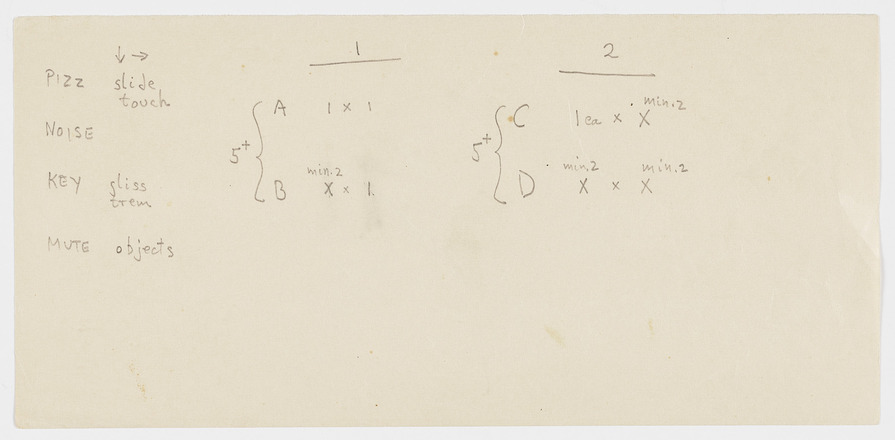 ↓ →
PIZZ slide
touch
NOISE
KEY gliss
trem
MUTE objects
1
5+ {
A 1 x 1
min.2
B X x 1
2
5+ {
min.2
C 1 ea x X
min.2 min.2
D X x X